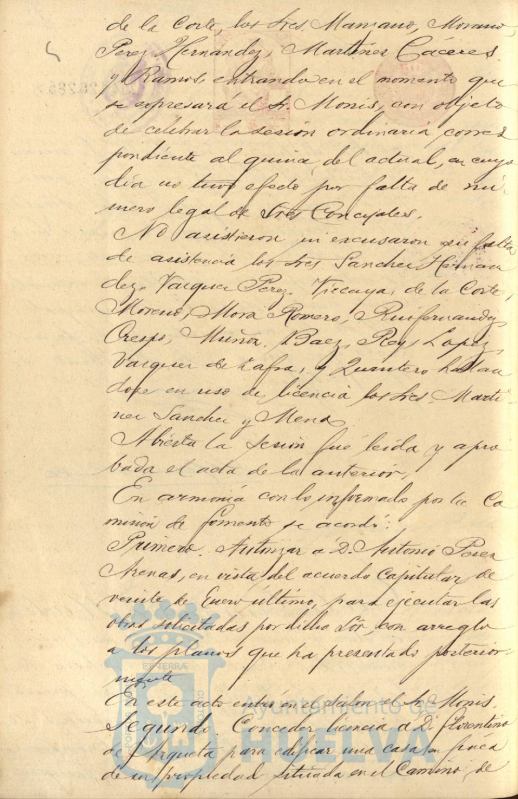 de la Corte, los Sres Manzano, Moreno,
Perez Hernandez, Martinez Cáceres
y Ramos, entrando en el momento que
se expresará el Sr. Monis, con objeto
de celebrar la sesión ordinaria, corres
pondiente al quince del actual, en cuyo
día no tuvo efecto por falta de nú-
mero legal de Sres Concejales.
No asistieron ni excusaron su falta
de asistencia los Sres Sanchez Hernan
dez, Vazquez Perez, Vizcaya, de la Corte,
Moreno, Mora Romero, Ruifernandez
Crespo, Muñoz, Baez, Rey, Lopez,
Vazquez de Zafra, y Quintero hallan
dose en uso de licencia los Sres Marti-
nez Sanchez y Mena.
Abierta la sesión fué leida y apro
bada el acta de la anterior.
En armonía con lo informado por la Co
misión de fomento se acordó:
Primero. Autorizar a D. Antonio Perez
Arenas, en vista del acuerdo Capitular de
veinte de Enero último, para ejecutar las
obras solicitadas por dicho Sór, con arreglo
a los planos que ha presentado posterior-
mente
En este acto entró en el salon el Sr. Monis.
Segundo. Conceder licencia a D. Florentino
de Azqueta para edificar una casa en finca
de su propiedad situada en el Camino de
Ayuntamiento de
HUELVA